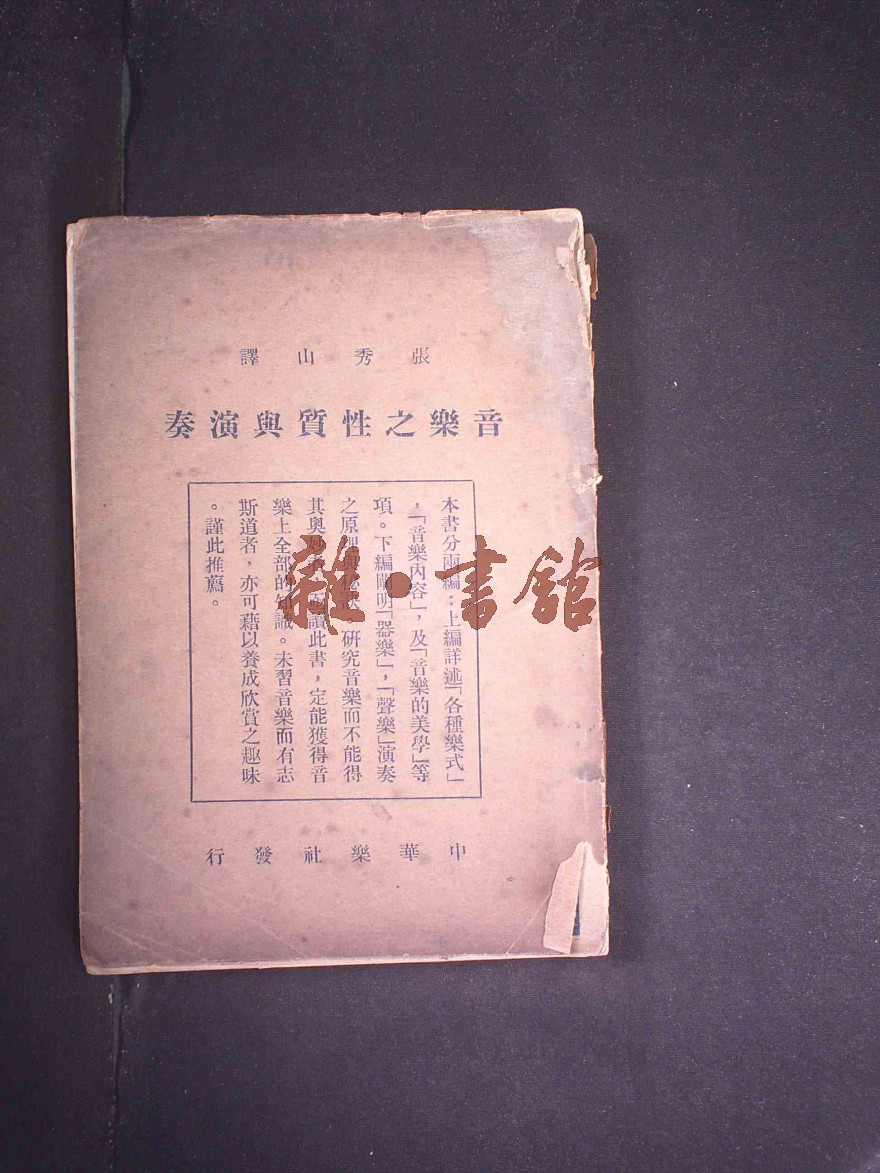 張秀山譯
音樂之性質與演奏
本書分兩編：上編詳述「各種樂式」
，「音樂內容」，及「音樂的美學」等
項。下編闡明「器樂」，「聲樂」演奏
之原理與秘訣。研究音樂而不能得
其奧妙者，讀此書，定能獲得音
樂上全部的知識。未習音樂而有志
斯道者，亦可藉以養成欣賞之趣味
。謹此推薦。
中華樂社發行
雜·書館